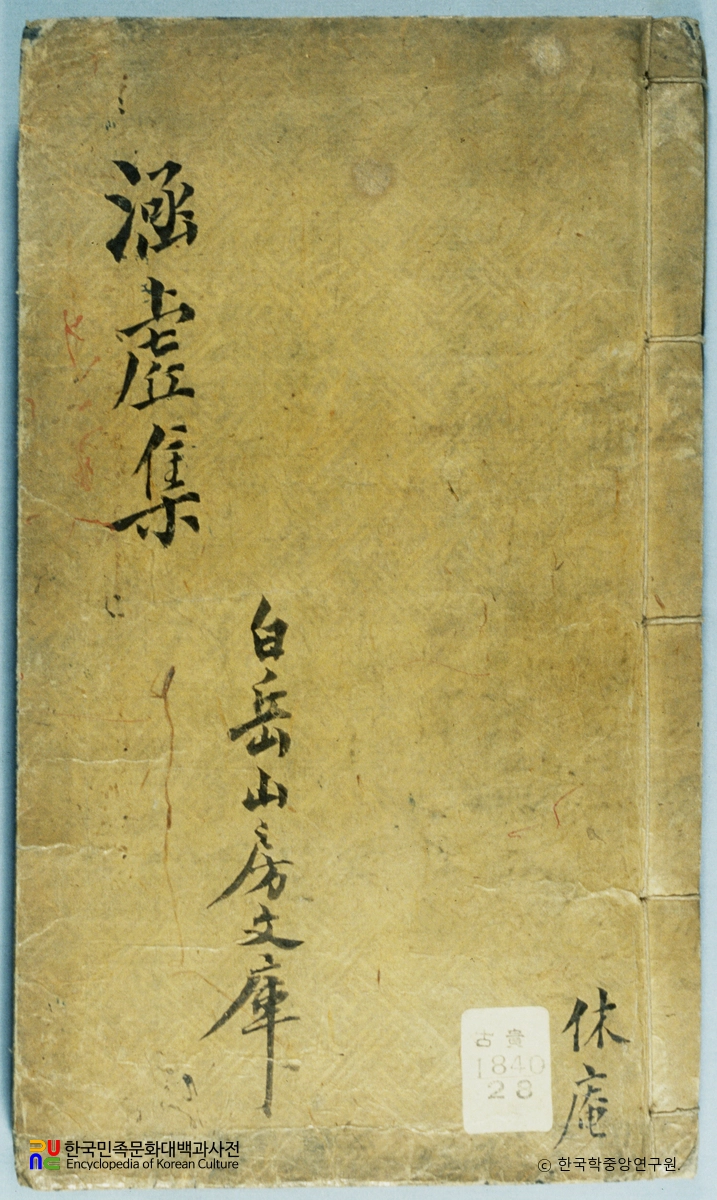 涵虛集
白岳山房文庫
休庵
古貴
1840
28
한국민족문화대백과사전
Encyclopedia of Korean Culture
© 한국학중앙연구원.